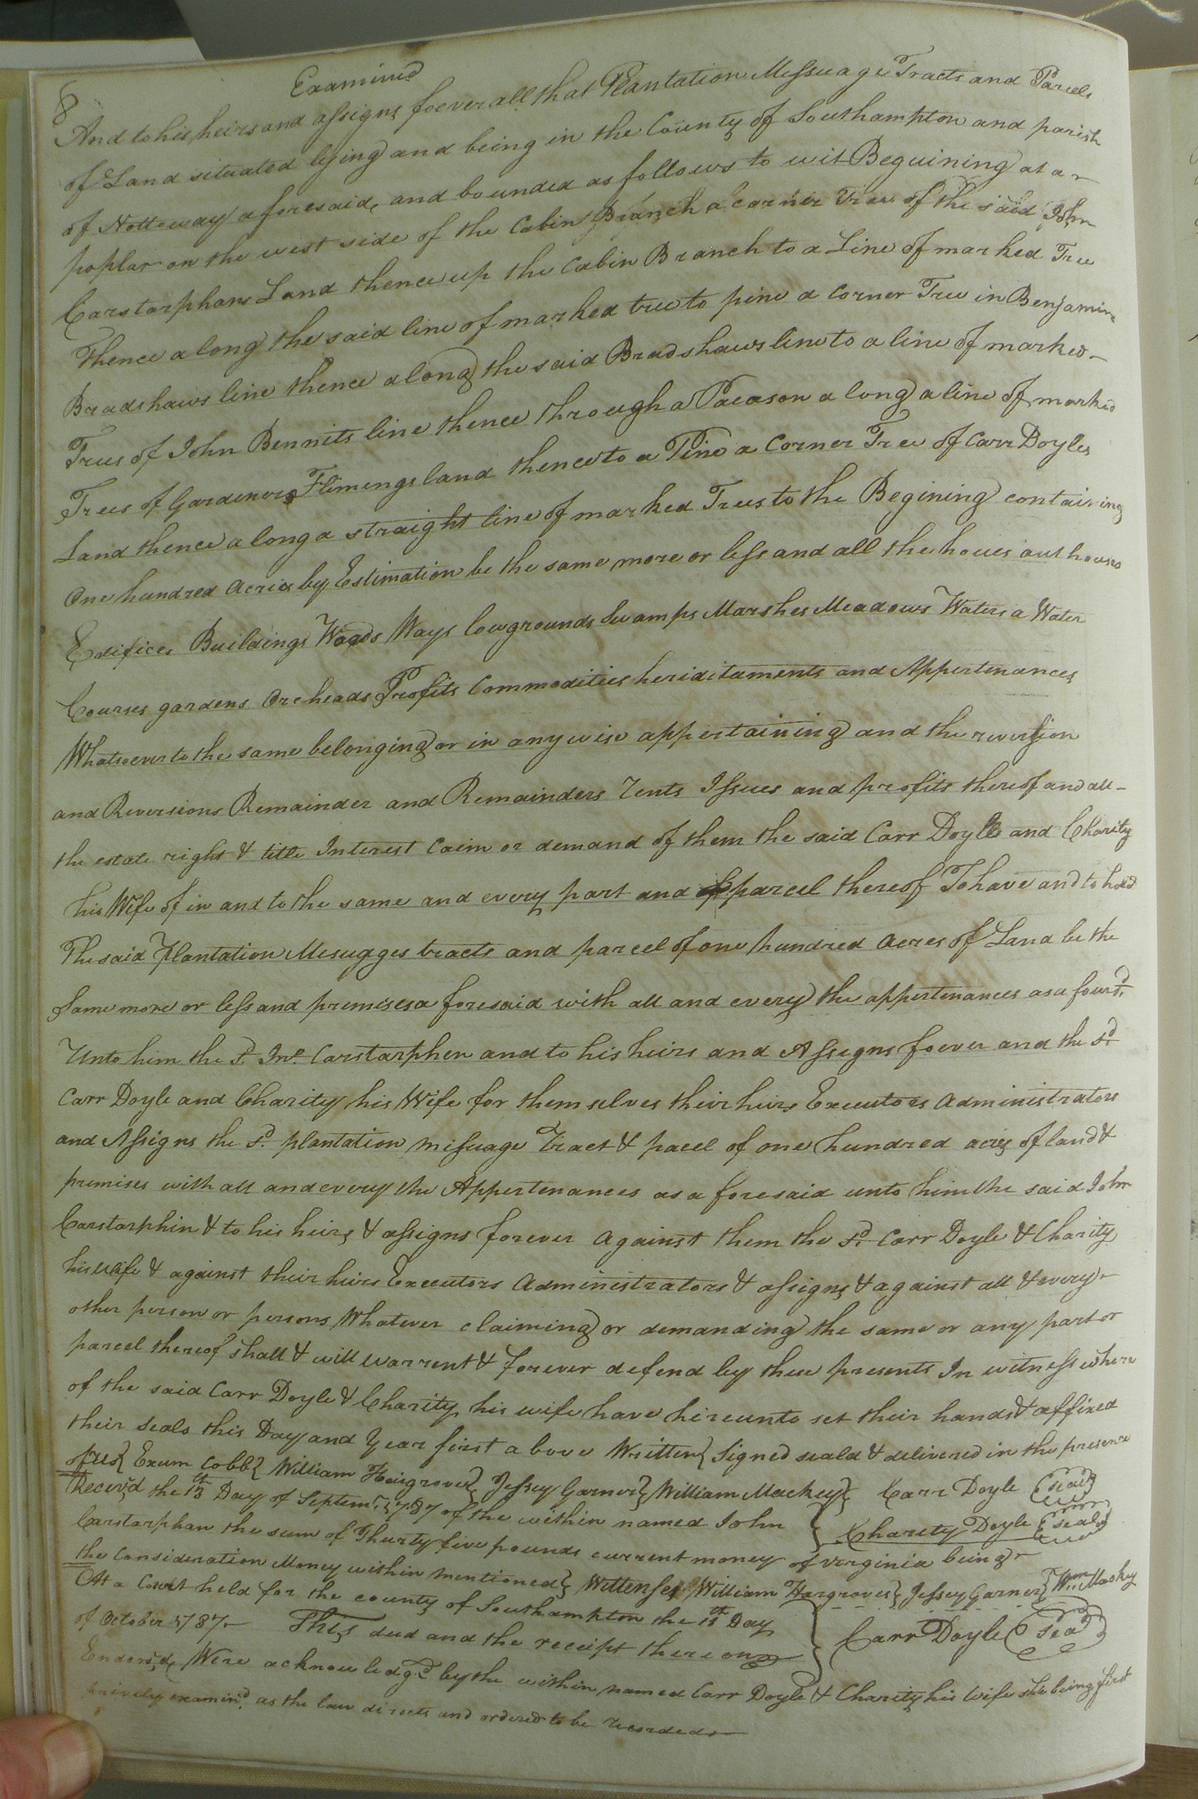 8
Examined
And to his heirs and assigns foever all that Plantation Messuage Tracts and Parcels
of Land situated lying and being in the County of Southampton and parish
of Nottoway aforesaid, and bounded as follows to wit Beguining at a
poplar on the west side of the Cabin Branch a corner Tree of the said John
Carstarphans Land thence up the Cabin Branch to a Line of marked Tree
Thence along the said line of marked tree to pine a corner Tree in Benjamin
Bradshaws line thence along the said Bradshaws line to a line of marked
Trees of John Bennits line thence through a Pocason along a line of marked
Trees of Gardeners Flimengs land thence to a Pine a Corner Tree of Carr Doyles
Land thence along a straight line of marked Trees to the Begining containing
One hundred Acres by Estimation be the same more or less and all the houses out houses
Edifices Buildings Woods Ways lowgrounds Swamps Marshes Meadows Waters a Water
Courses gardens Orcheads Profits Commodities heriditaments and Appertenances
Whatsoever to the same belonging or in any wise appertaining and the reversion
and Reversions Remainder and Remainders Rents Issues and profits thereof and all
the estate right & title Interest Caim or demand of them the said Carr Doyle and Charity
his Wife of in and to the same and every part and parcel thereof To have and to hold
The said Plantation Mesugges tracts and parcel of one hundred acres of Land be the
Same more or less and premises aforesaid with all and every the appertenances as afoursd.
Unto him the sd. Jno. Carstarphen and to his heirs and Assigns foever and the sd.
Carr Doyle and Charity his Wife for themselves their heirs Executors administrators
and Assigns the sd. plantation missuage Tract & pacel of one hundred acres of land &
premises with all and every the Appertenances as aforesaid unto him the said John
Carstarphin & to his heirs & assigns forever against them the sd. Carr Doyle & Charity
his wife & against their heirs Executors Administrators & assigns & against all & every
other person or persons Whatever claiming or demanding the same or any part or
parcel thereof shall & will warrent & forever defend by these presents In witness where
of the said Carr Doyle & Charity his wife have hereunto set their hands & affixed
their seals this Day and Year first above Written} Signed seald & delivered in the presence
of us} Exum Cobb} William Hargrove} Jessey Garner} William Mackey} Carr Doyle (seal)
Receivd the 13th Day of Septemr. 1787 of the within named John } Charity Doyle (seal)
Carstarphan the sum of Thurty five pounds current money of virginia being
the Consideration Money within mentioned} Wittenses William Hargroves} Jessey Garner} Wm. Mackey
At a Court held for the county of Southamton the 11th Day } Carr Doyle (seal)
of October 1787 This deed and the receipt thereon
Endorsd, Were acknowledgd by the within named Carr Doyle & Charity his wife she being first
privily examind. as the law directs and ordered to be recorded